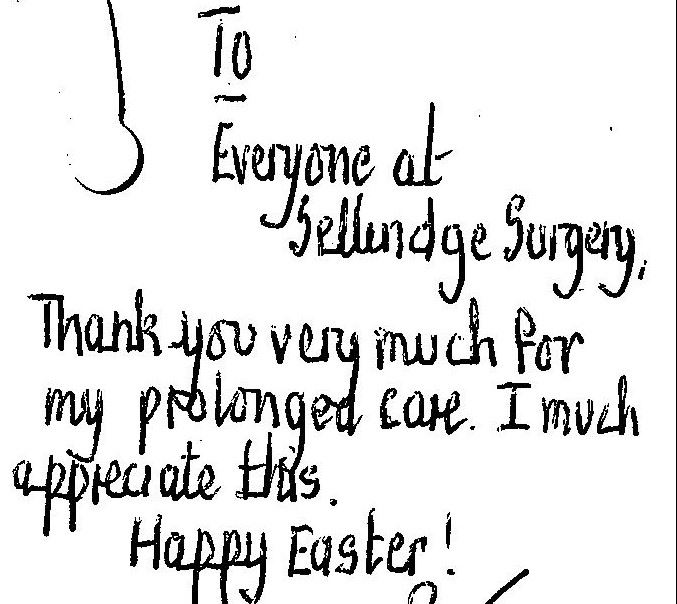 To
Everyone at
Sellindge Surgery,
Thank you very much for
my prolonged care. I much
appreciate this.
Happy Easter!